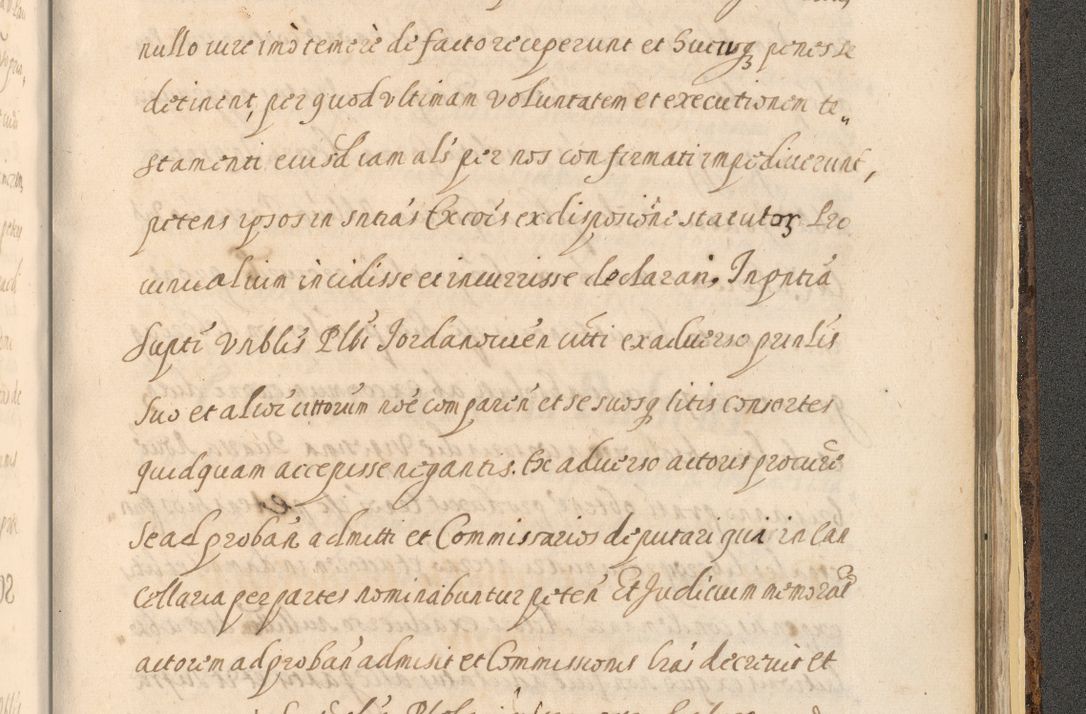 nullo iure imò temerè de facto receperunt et hucusq penes se
detinent, per quod vltimam voluntatem et executionem te„
stamenti eiusdam als per nos confirmati impediuerunt,
petens ipsos in sntias Excois ex disposione statutor Pro
uincialium incidisse et incurrisse declarari. In pntia
Supti Vnblis Plbi Jordanouien citti ex aduerso prnlis
suo et alior cittorum noe comparen et se suosq litis consortes
quidquam accepisse negantis. Ex aduerso actoris procure
se ad proban admitti et Commissarios deputari qui in Can
cellaria per partes nominabuntur peten Et Judicium memorat
actorem ad proban admisit et Commissionis lras decreuit et